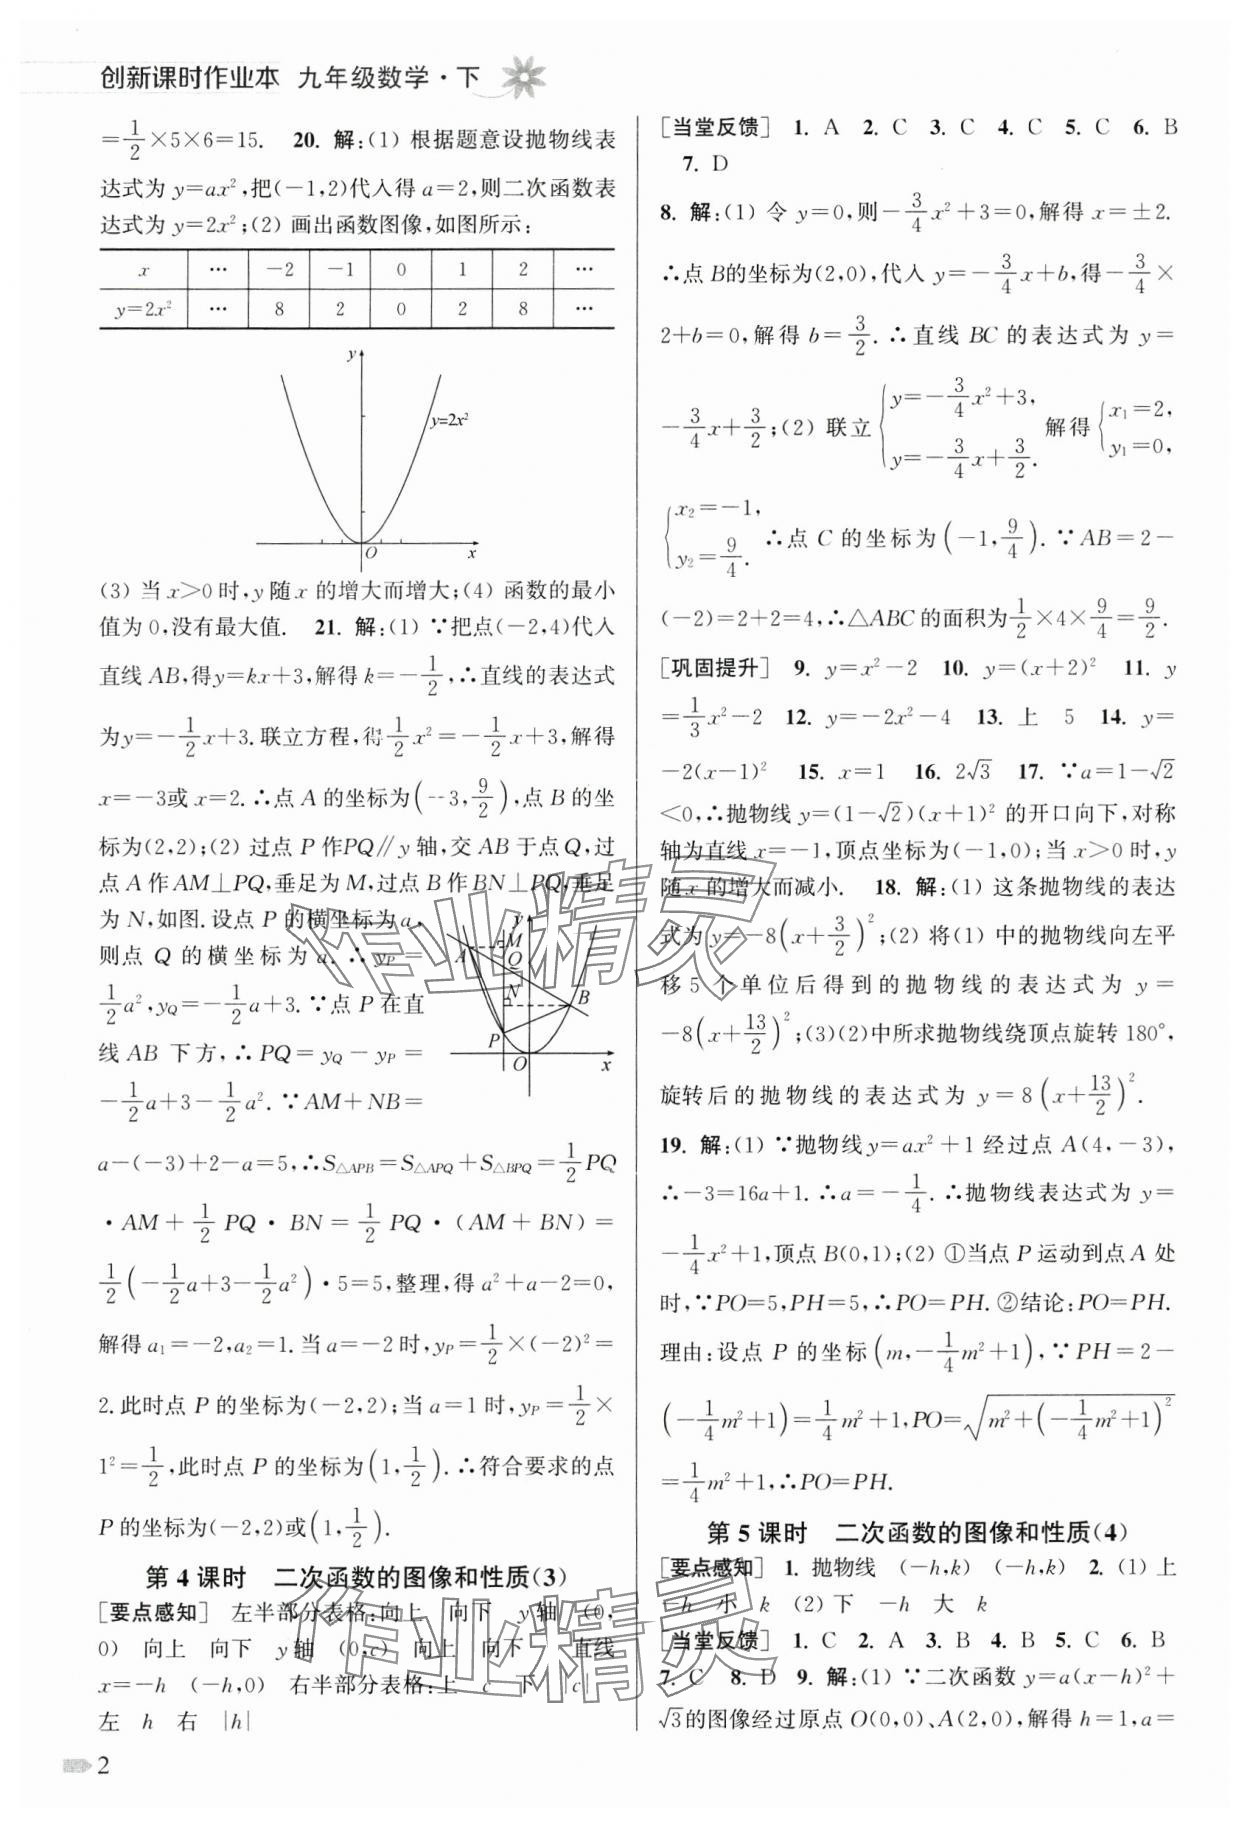 创新课时作业本 九年级数学·下
=1/2×5×6=15. 20. 解:(1) 根据题意设抛物线表
达式为 y=ax²,把(-1,2)代入得 a=2,则二次函数表
达式为 y=2x²;(2) 画出函数图像,如图所示:
x … -2 -1 0 1 2 …
y=2x² … 8 2 0 2 8 …
y
y=2x²
O x
(3) 当 x>0 时,y 随 x 的增大而增大;(4) 函数的最小
值为 0,没有最大值. 21. 解:(1) ∵把点(-2,4)代入
直线 AB,得y=kx+3,解得 k=-1/2,∴直线的表达式
为y=-1/2x+3.联立方程,得1/2x²=-1/2x+3,解得
x=-3或 x=2.∴点 A 的坐标为(-3,9/2),点 B 的坐
标为(2,2);(2) 过点 P 作PQ∥y 轴,交 AB 于点 Q,过
点 A 作 AM⊥PQ,垂足为 M,过点 B 作 BN⊥PQ,垂足
为 N,如图.设点 P 的横坐标为 a,
则点 Q 的横坐标为 a.∴yP=
1/2a²,yQ=-1/2a+3.∵点 P 在直
线 AB 下方,∴PQ=yQ-yP=
-1/2a+3-1/2a².∵AM+NB=
y
A M
Q
N
B
P
O x
a-(-3)+2-a=5,∴S△APB=S△APQ+S△BPQ=1/2PQ
·AM+1/2PQ·BN=1/2PQ·(AM+BN)=
1/2(-1/2a+3-1/2a²)·5=5,整理,得 a²+a-2=0,
解得 a₁=-2,a₂=1.当 a=-2 时,yP=1/2×(-2)²=
2.此时点 P 的坐标为(-2,2);当 a=1 时,yP=1/2×
1²=1/2,此时点 P 的坐标为(1,1/2).∴符合要求的点
P 的坐标为(-2,2)或(1,1/2).
第 4 课时 二次函数的图像和性质(3)
[要点感知] 左半部分表格:向上 向下 y 轴 (0,
0) 向上 向下 y 轴 (0,c) 向上 向下 直线
x=-h (-h,0) 右半部分表格:上 c 下 c
左 h 右 |h|
2
[当堂反馈] 1. A 2. C 3. C 4. C 5. C 6. B
7. D
8. 解:(1) 令 y=0,则-3/4x²+3=0,解得 x=±2.
∴点 B的坐标为(2,0),代入 y=-3/4x+b,得-3/4×
2+b=0,解得 b=3/2.∴直线 BC 的表达式为 y=
-3/4x+3/2;(2) 联立{y=-3/4x²+3, y=-3/4x+3/2. 解得{x₁=2, y₁=0,
{x₂=-1, y₂=9/4. ∴点 C 的坐标为(-1,9/4).∵AB=2-
(-2)=2+2=4,∴△ABC的面积为1/2×4×9/4=9/2.
[巩固提升] 9. y=x²-2 10. y=(x+2)² 11. y
=1/3x²-2 12. y=-2x²-4 13. 上 5 14. y=
-2(x-1)² 15. x=1 16. 2√3 17. ∵a=1-√2
<0,∴抛物线 y=(1-√2)(x+1)² 的开口向下,对称
轴为直线 x=-1,顶点坐标为(-1,0);当 x>0 时,y
随 x 的增大而减小. 18. 解:(1) 这条抛物线的表达
式为 y=-8(x+3/2)²;(2) 将(1) 中的抛物线向左平
移 5 个单位后得到的抛物线的表达式为 y=
-8(x+13/2)²;(3)(2)中所求抛物线绕顶点旋转 180°,
旋转后的抛物线的表达式为 y=8(x+13/2)².
19. 解:(1) ∵抛物线y=ax²+1 经过点 A(4,-3),
∴-3=16a+1.∴a=-1/4.∴抛物线表达式为 y=
-1/4x²+1,顶点 B(0,1);(2) ①当点 P 运动到点 A 处
时,∵PO=5,PH=5,∴PO=PH.②结论:PO=PH.
理由:设点 P 的坐标(m,-1/4m²+1),∵PH=2-
(-1/4m²+1)=1/4m²+1,PO=√(m²+(-1/4m²+1)²)
=1/4m²+1,∴PO=PH.
第 5 课时 二次函数的图像和性质(4)
[要点感知] 1. 抛物线 (-h,k) (-h,k) 2. (1) 上
-h 小 k (2) 下 -h 大 k
[当堂反馈] 1. C 2. A 3. B 4. B 5. C 6. B
7. C 8. D 9. 解:(1) ∵二次函数 y=a(x-h)²+
√3的图像经过原点 O(0,0)、A(2,0),解得 h=1,a=
作业精灵
作业精灵